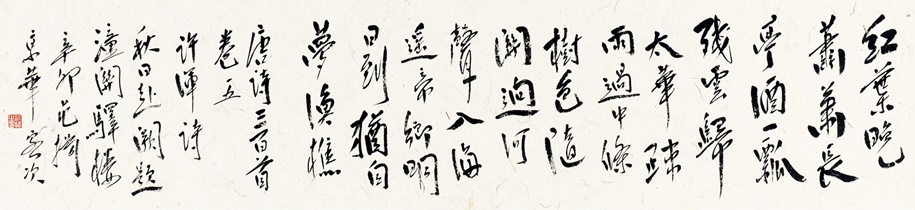 紅葉晚
蕭蕭長
亭酒一瓢
殘雲歸
太華疎
雨過中條
樹色隨
關迥河
聲入海
遥帝鄉明
日到猶自
夢漁樵
唐詩三百首
卷五
許渾詩
秋日赴闕題
潼關驛樓
辛卯范揚
京華客次